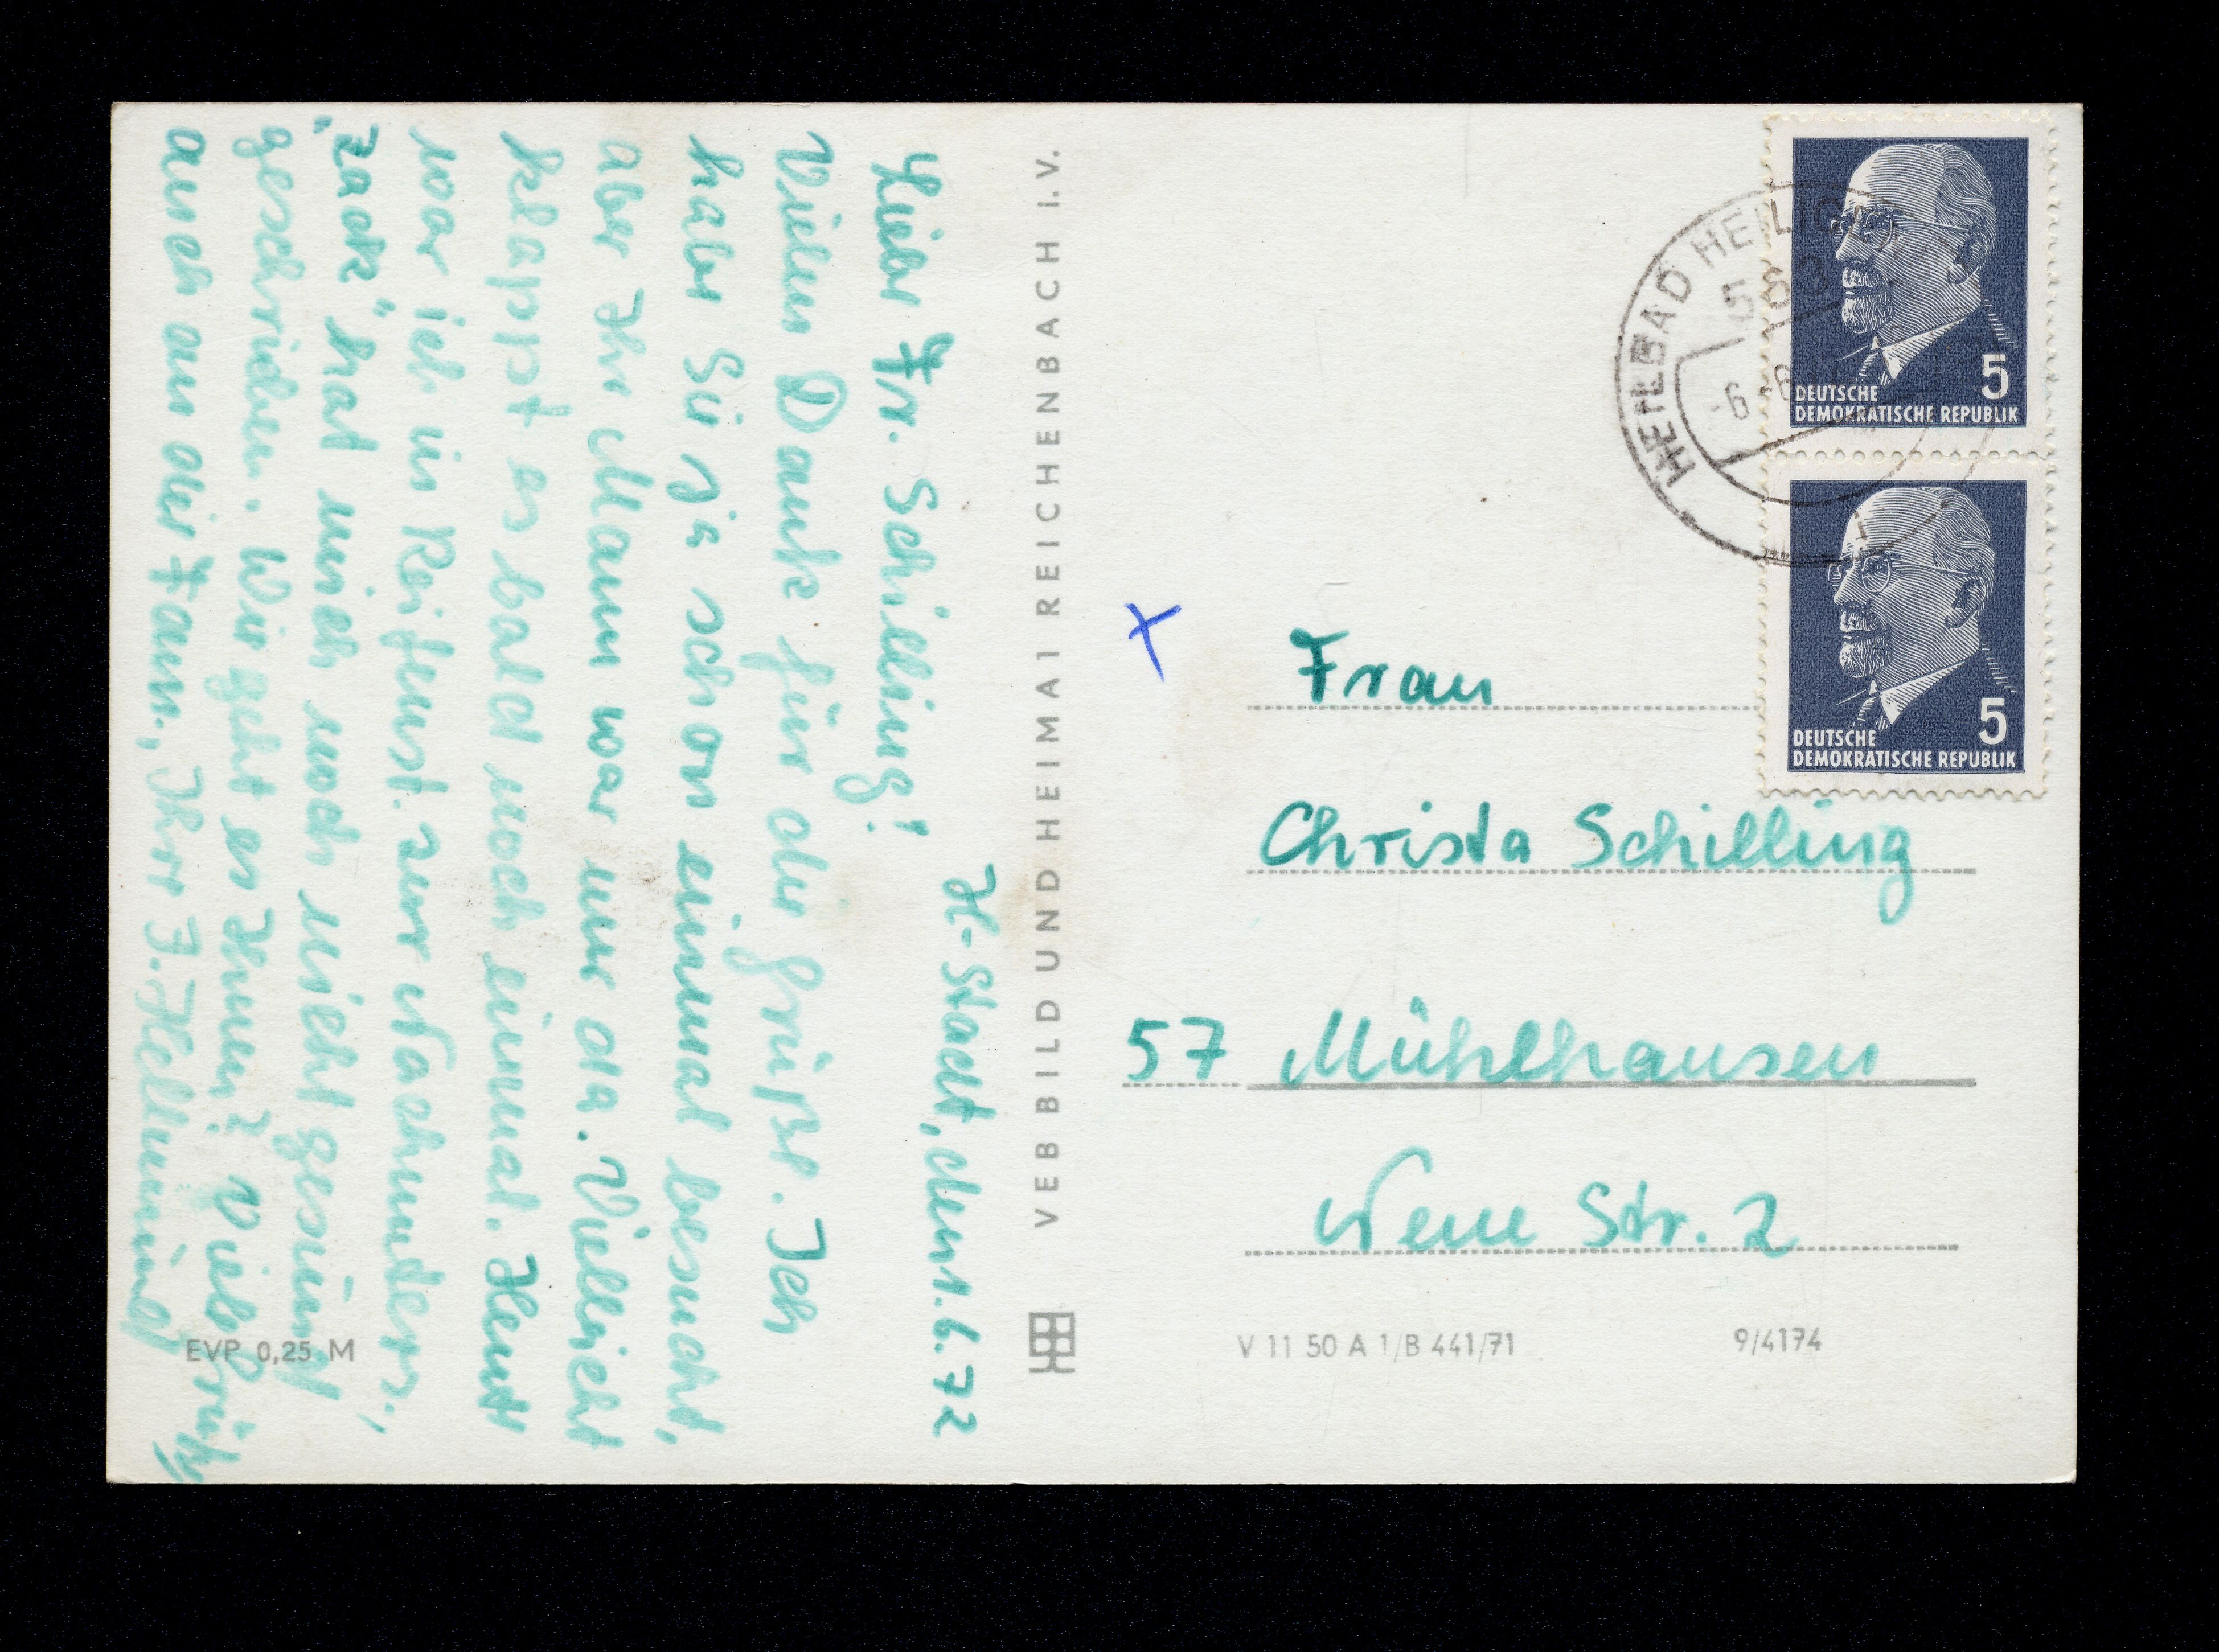 H-Stadt, den 1.6.72
Liebe Fr. Schilling!
Vielen Dank für die Grüße. Ich
habe Sie ja schon einmal besucht,
aber Ihr Mann war nur da. Vielleicht
klappt es bald noch einmal. Heute
war ich in Reifenst. zur Nachunters.,
"Zack" hat mich noch nicht gesund
geschrieben. Wie geht es Ihnen? Viele Grüße
auch an die Fam., Ihre J.
EVP 0,25 M
VEB BILD UND HEIMAT REICHENBACH i.V.
HEILBAD HEILIG
-6.-6
5
DEUTSCHE
DEMOKRATISCHE REPUBLIK
5
DEUTSCHE
DEMOKRATISCHE REPUBLIK
x
Frau
Christa Schilling
57 Mühlhausen
Neue Str. 2
V 11 50 A 1/B 441/71 9/4174